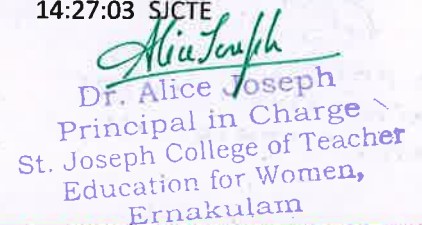 14:27:03 SJCTE
Alice Joseph
Dr. Alice Joseph
Principal in Charge
St. Joseph College of Teacher
Education for Women,
Ernakulam